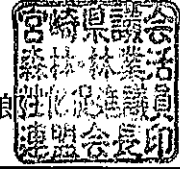 宮崎県議会
森林・林業活
郎
性化促進議員
連盟会長印